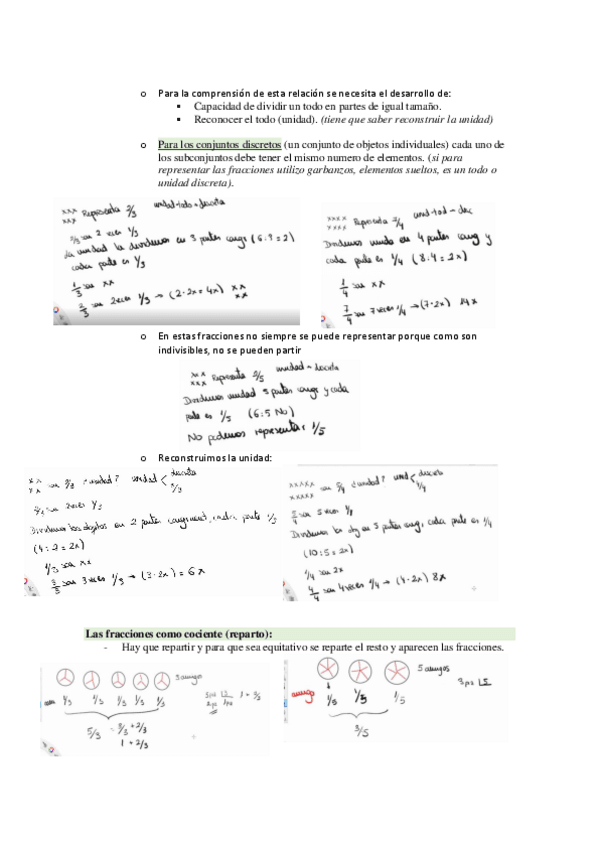 o Para la comprensión de esta relación se necesita el desarrollo de:
▪ Capacidad de dividir un todo en partes de igual tamaño.
▪ Reconocer el todo (unidad). (tiene que saber reconstruir la unidad)
o Para los conjuntos discretos (un conjunto de objetos individuales) cada uno de
los subconjuntos debe tener el mismo numero de elementos. (si para
representar las fracciones utilizo garbanzos, elementos sueltos, es un todo o
unidad discreta).
xxx Representa 2/3
xxx
2/3 son 2 veces 1/3
la unidad la dividimos en 3 partes cong (6:3=2)
cada parte es 1/3
1/3 son xx
2/3 son 2 veces 1/3 → (2·2x=4x) xx
xx
xxxx Representa 7/4
xxxx
Dividimos unidad en 4 partes cong y
cada parte es 1/4 (8:4=2x)
1/4 son xx
7/4 son 7 veces 1/4 → (7·2x) 14x
o En estas fracciones no siempre se puede representar porque como son
indivisibles, no se pueden partir
xxx Representa 2/5 unidad - discreta
xxx
Dividimos unidad 5 partes cong y cada
parte es 1/5 (6:5 No)
No podemos representar 1/5
o Reconstruimos la unidad:
xx son 2/3 ¿unidad? unidad < discreta
xx
2/3 son 2 veces 1/3
Dividimos los objetos en 2 partes congruent, cada parte 1/3
(4:2=2x)
1/3 son xx
3/3 son 3 veces 1/3 → (3·2x) = 6x
xxxxx son 5/4 ¿unidad? unid < discreta
xxxxx
5/4 son 5 veces 1/4
Dividimos los obj en 5 partes cong, cada parte es 1/4
(10:5=2x)
1/4 son 2x
4/4 son 4 veces 1/4 → (4·2x) 8x
Las fracciones como cociente (reparto):
- Hay que repartir y para que sea equitativo se reparte el resto y aparecen las fracciones.
3 amigos
1/3 1/3 1/3 1/3 1/3
5/3 = 3/3 + 2/3
1 + 2/3
5 amigos
amigo 1/5 1/5 1/5
3/5